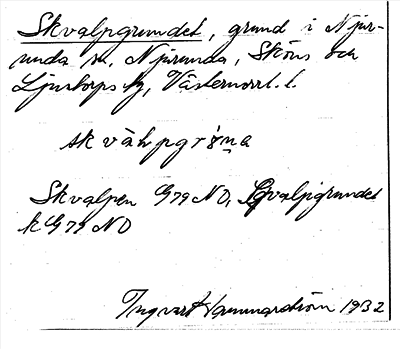 Skvalpgrundet, grund i Njur-
unda sn, Njurunda, Sköns och
Ljustorps tg, Västernorrl. l.
skvàlpgrøṇa
Skvalpen G79 NO, Skvalpgrundet
k G79 NO
Ingvar Hammarström 1932